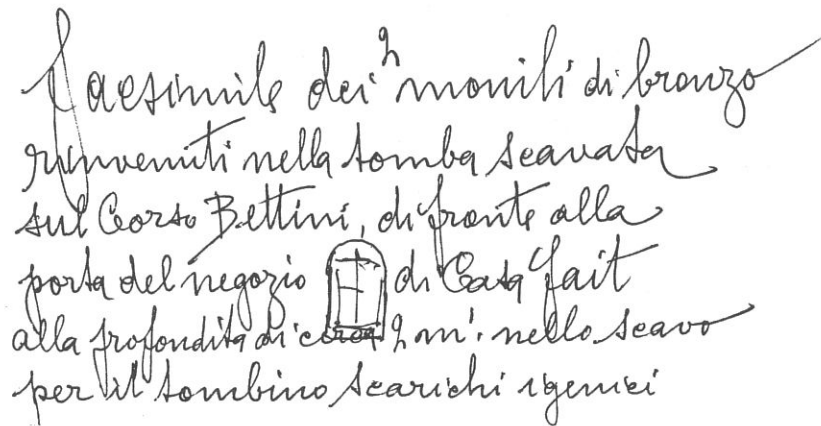 Facsimile dei 2 monili di bronzo
rinvenuti nella tomba scavata
sul Corso Bettini, di fronte alla
porta del negozio di Casa Fait
alla profondità di circa 2 m. nello scavo
per il tombino scarichi igenici